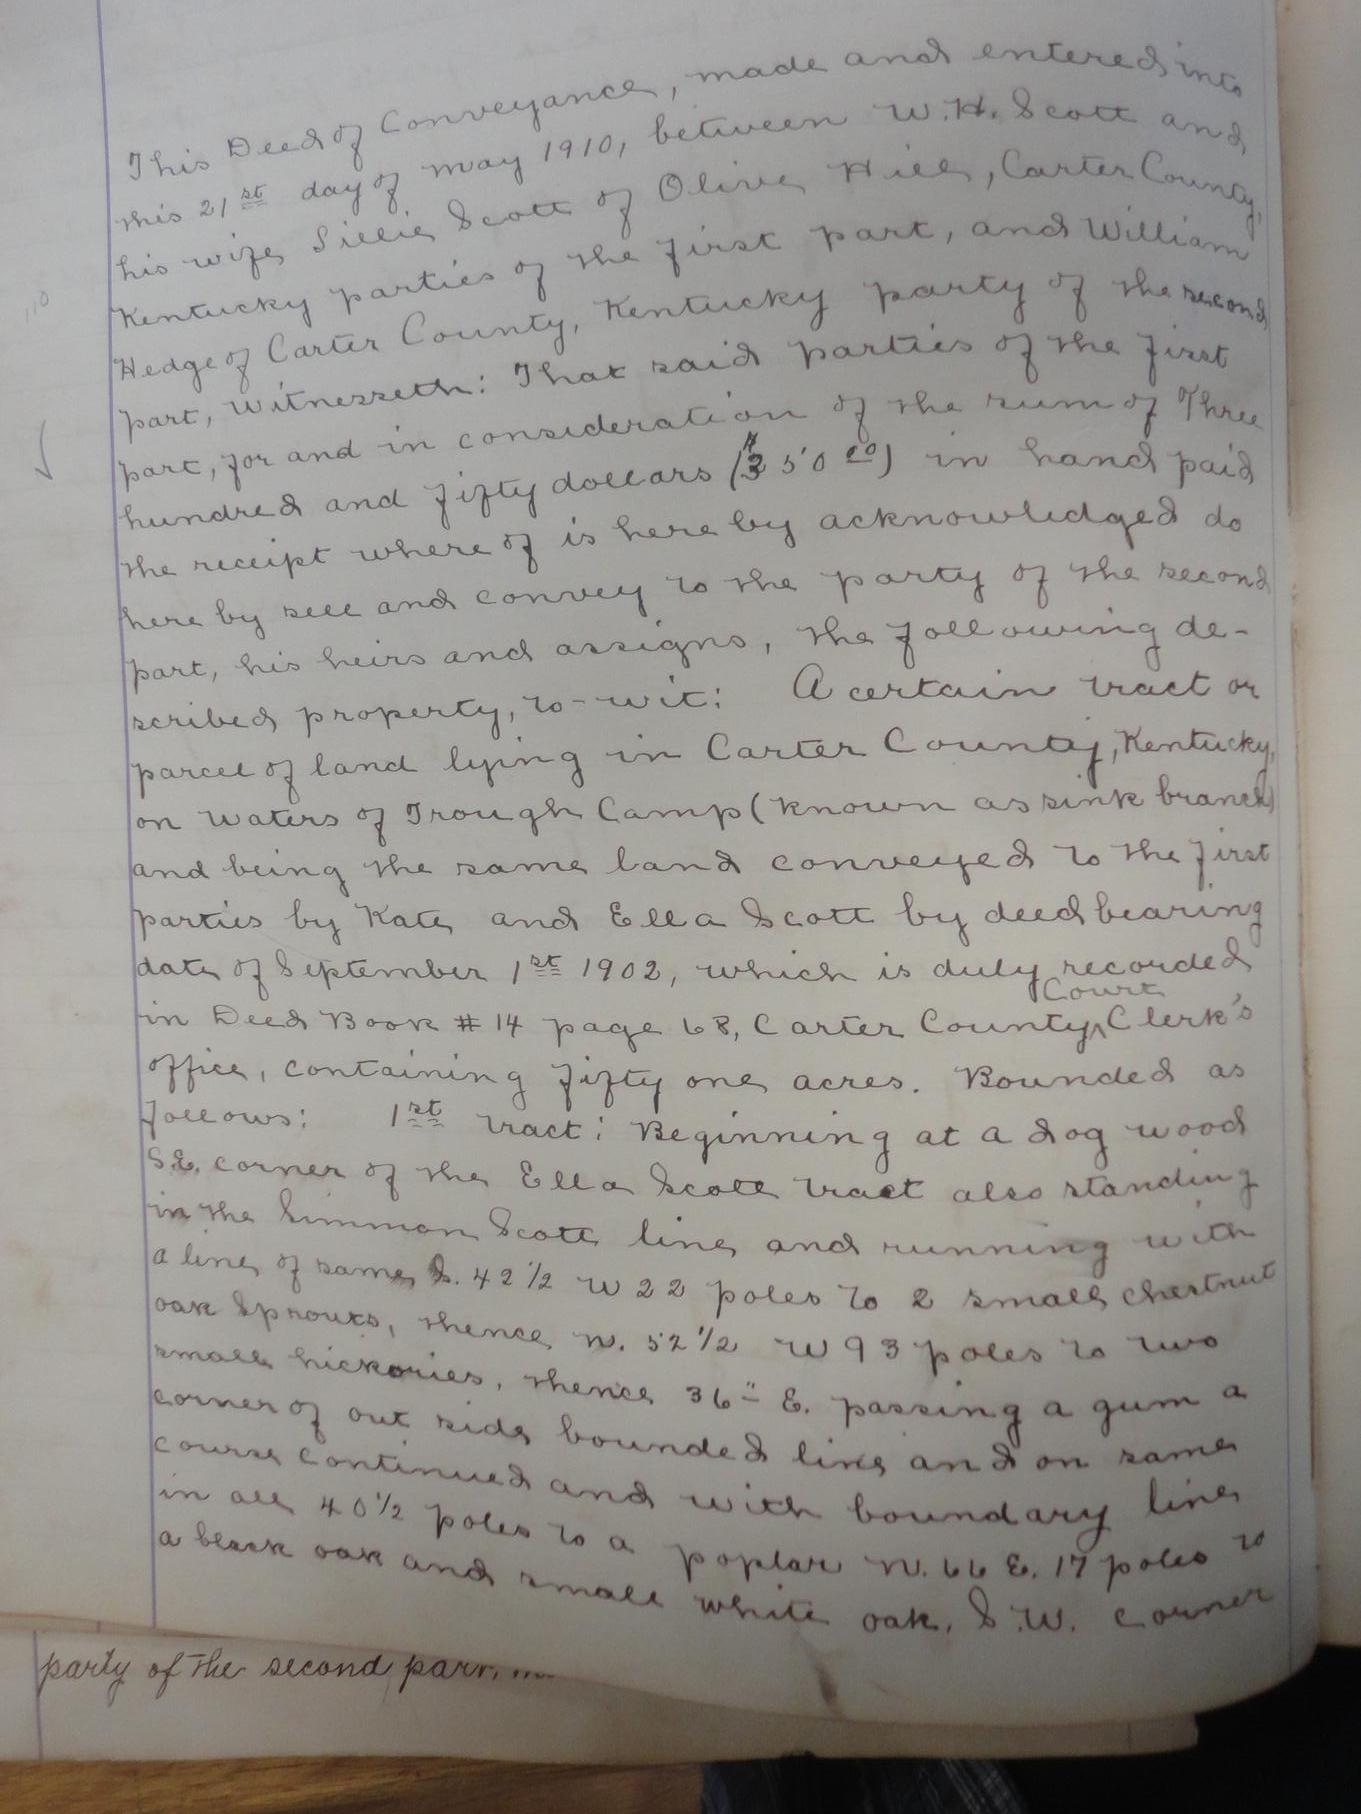 This Deed of Conveyance, made and entered into
this 21st day of May 1910, between W.H. Scott and
his wife, Lillie Scott of Olive Hill, Carter County,
Kentucky parties of the first part, and William
Hedge of Carter County, Kentucky party of the second
part, Witnesseth: That said parties of the first
part, for and in consideration of the sum of Three
hundred and fifty dollars ($350 00) in hand paid
the receipt where of is here by acknowledged do
here by sell and convey to the party of the second
part, his heirs and assigns, the following de-
scribed property, to-wit: A certain tract or
parcel of land lying in Carter County, Kentucky,
on waters of Trough Camp (known as sink branch)
and being the same land conveyed to the first
parties by Kate and Ella Scott by deed bearing
date of September 1st 1902, which is duly recorded
in Deed Book #14 page 68, Carter County Court Clerk's
office, containing fifty one acres. Bounded as
follows: 1st tract: Beginning at a dog wood
S.E. corner of the Ella Scott tract also standing
in the Simmon Scott line and running with
a line of same S. 42 1/2 W 22 poles to 2 small chestnut
oak sprouts, thence N. 52 1/2 W 93 poles to two
small hickories, thence 36 E. passing a gum a
corner of out side bounded line and on same
course continued and with boundary line
in all 40 1/2 poles to a poplar N. 66 E. 17 poles to
a black oak and small white oak, S.W. corner
party of the second part,